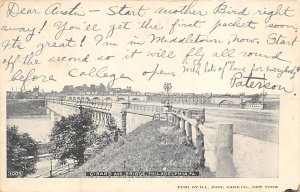 Dear Austin - Start another Bird right
away! You'll get the first pocket
It's great! I'm in Middletown Now. Start
soon so it will fly all round
before College opens with lots of love for everybody
Paterson
1005
GIRARD AVE. BRIDGE, PHILADELPHIA, PA.
PUB. BY ILL. POST. CARD CO., NEW YORK.